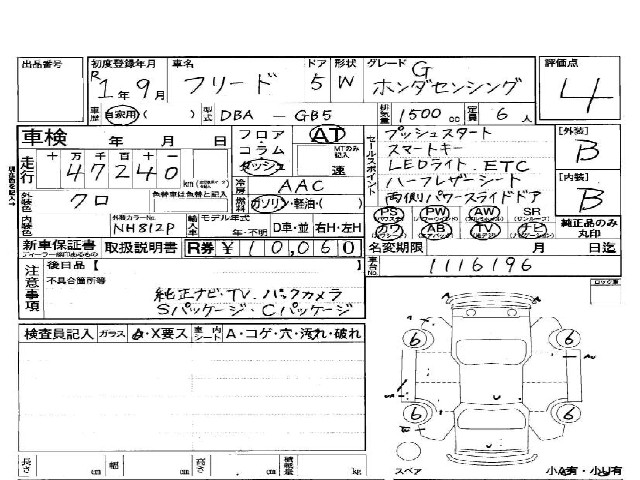 出品番号 初度登録年月 車名 ドア 形状 グレード 評価点
R1年9月 フリード 5 W G ホンダセンシング 4
車歴 自家用 ( ) 型式 DBA - GB5 排気量 1500 cc 定員 6 人
車検 年 月 日 フロア コラム ダッシュ AT MTのみ記入 速
セールスポイント プッシュスタート
スマートキー
LEDライト、ETC
ハーフレザーシート
両側パワースライドドア
[外装] B
[内装] B
走行 十 万 千 百 十 一
47240 km
冷房 AAC
外装色 クロ 色替車は色替と記入 燃料 ガソリン・軽油( )
PS PW AW SR 純正品のみ丸印
カワ AB TV ナビ
内装色 外装カラーNo. NH812P 輸入車 モデル年式 年・不明 D車・並 右H・左H
新車保証書 取扱説明書 R券 ¥10,060 名変期限 月 日迄
ディーラー個印あるもの
車台No. 1116196
注意事項 後日品【
不具合箇所等
純正ナビ・TV・バックカメラ
Sパッケージ・Cパッケージ
ロック車
検査員記入 ガラス X要ス 車内シート A・コゲ・穴・汚れ・破れ
6 6
6 6
長さ cm 幅 cm 高さ cm 積載量 kg
スペア 小A有・小U有